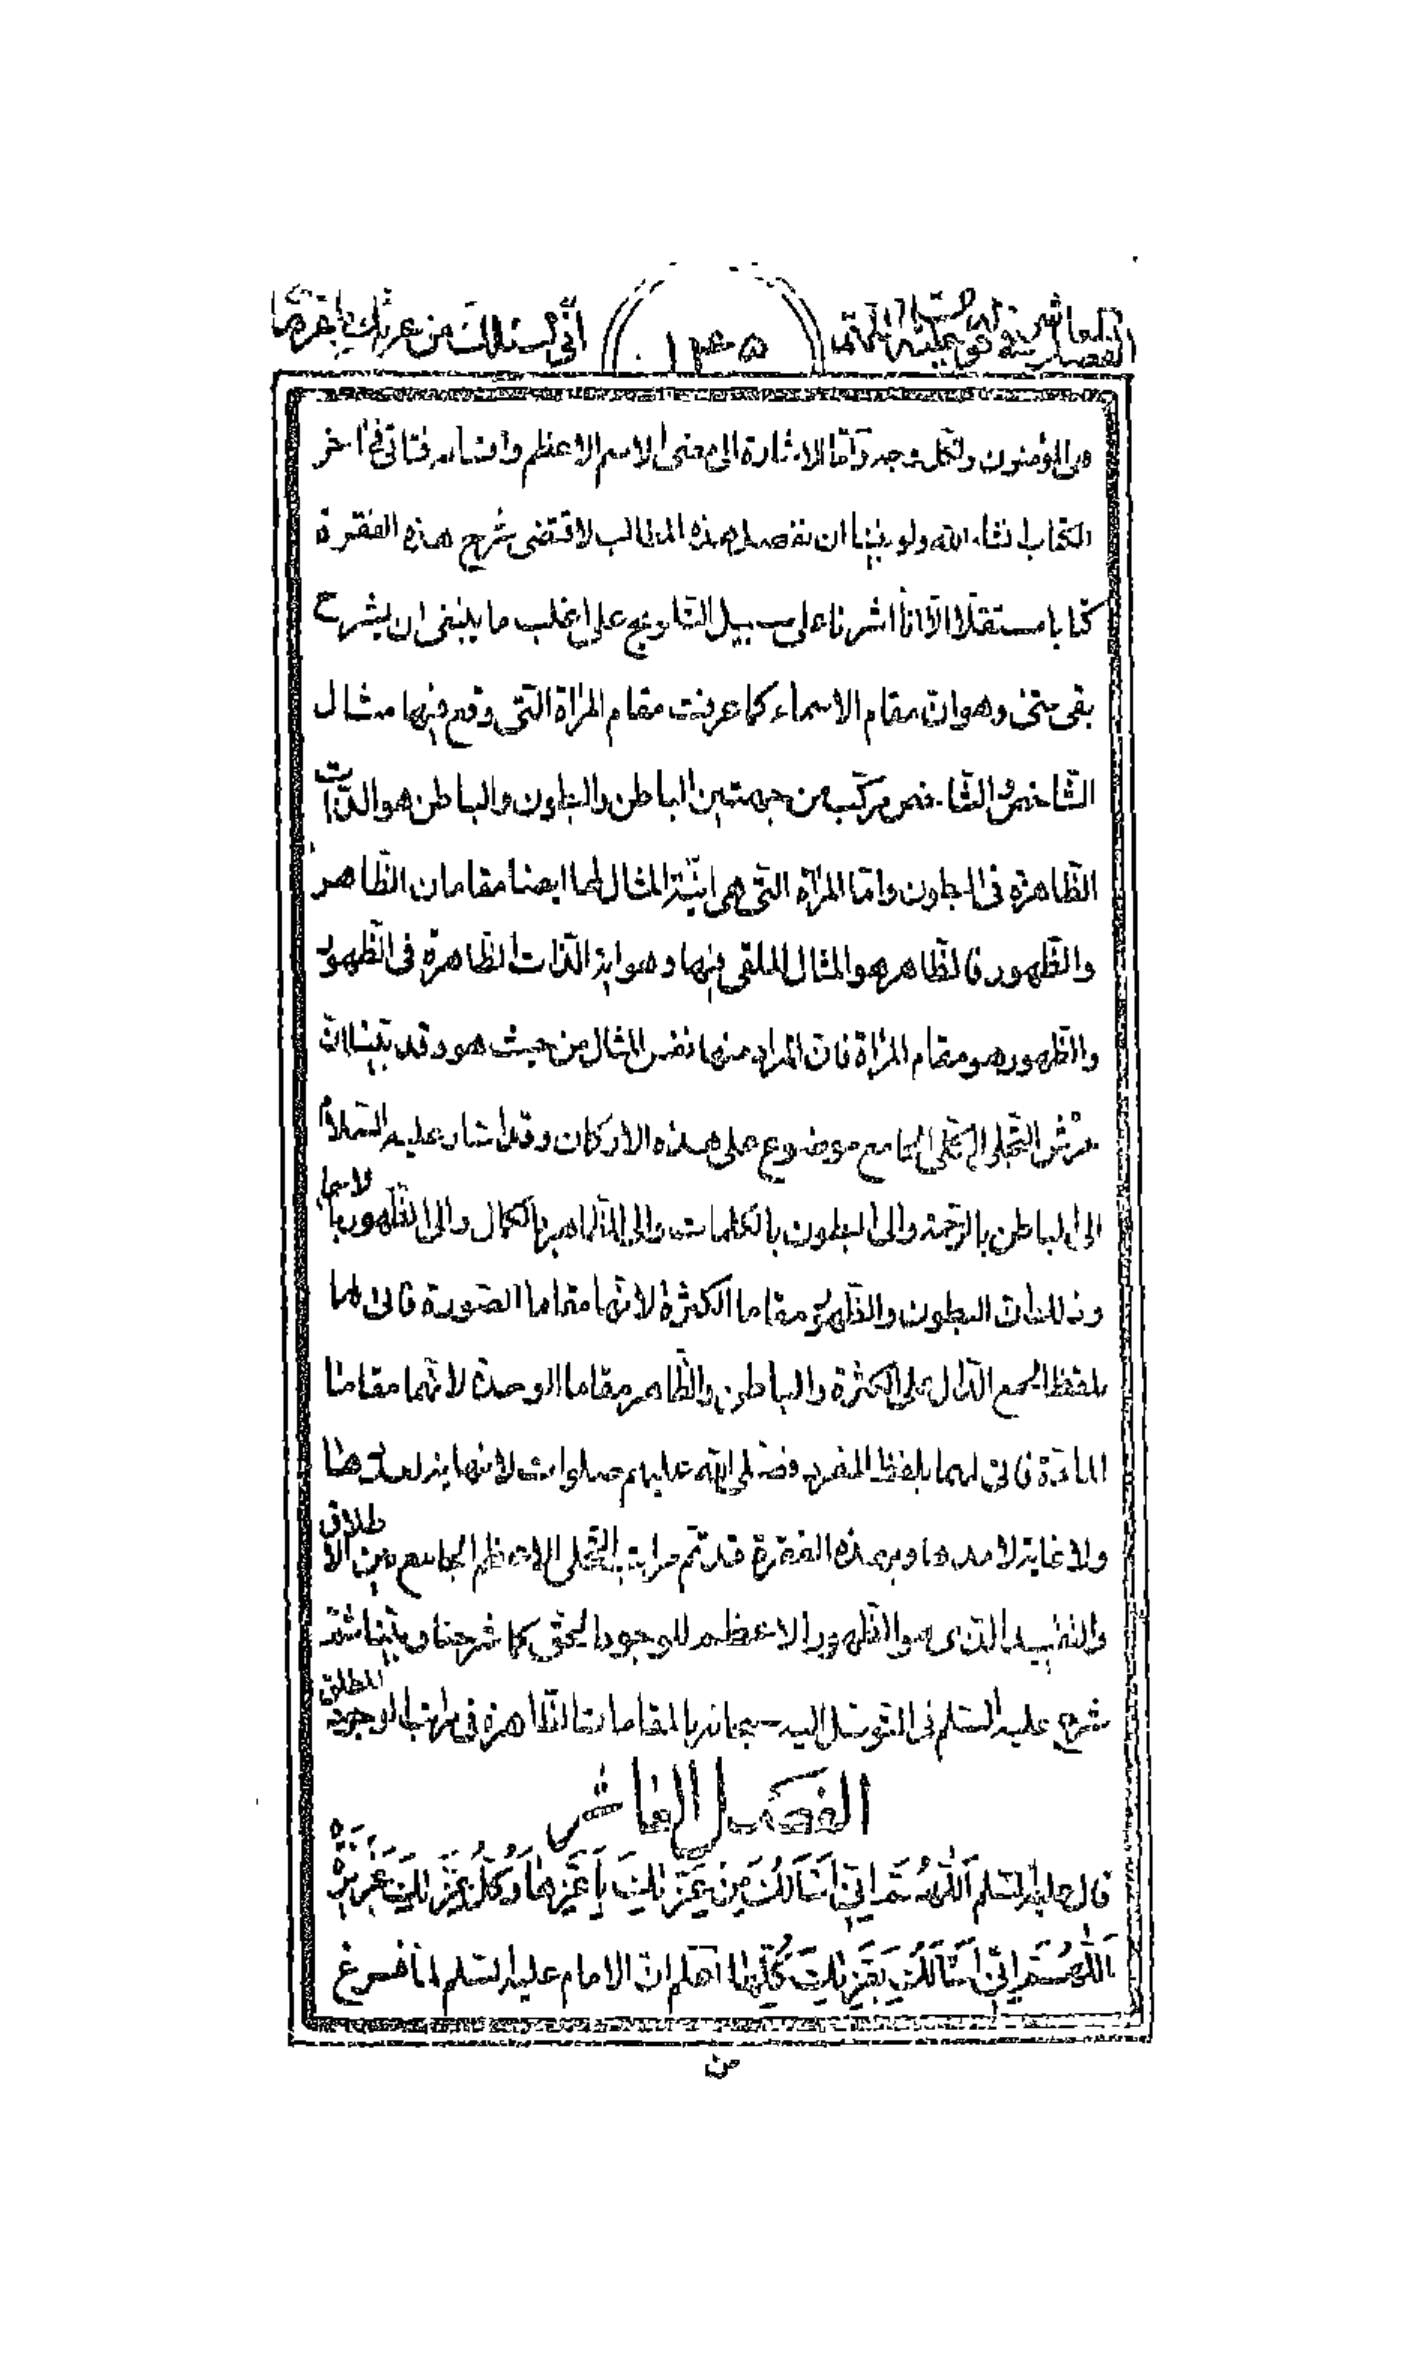 الفصل العاشر في قوله عليه السلام اللهم
١٣٥
اني اسئلك من عزتك باعزها
هی المؤمنون ولكل وجه وامّا الاشارة الى معنى الاسم الاعظم واقسامه فتاتي في آخر
الكتاب انشاء الله ولو بنينا ان نفصل هذه المطالب لاقتضى شرح هذه الفقرة
كتابا مستقلّا الّا انّا اشرنا على سبيل التلويح على اغلب ما ينبغى ان يشرح
بقى شئ وهو انّ مقام الاسماء كما عرفت مقام المرٰاة التّى وقع فيها مثال
الشّاخص والشّاخص مركّب من جهتين الباطن والبطون والباطن هو الذّات
الظّاهرة فى البطون وامّا المرآة التّى هى انيّة المثال لها ايضا مقامان الظّاهر
والظّهور فالظّاهر هو المثال الملقى فيها وهو اية الذّات الظّاهرة فى الظّهور
والظّهور هو مقام المرٰاة فانّ المراد منها نفس المثال من حيث هو وقد بيّنا انّ
عرش التّجلى الجامع موضوع على هذه الاركان وقد اشار عليه السّلام
الى الباطن بالرّحمة والى البطون بالكلمات والى الظّاهر بالكمال والى الظّهور بالاسماء
وذلك لانّ البطون والظّهور مقاما الكثرة لانّهما مقاما الصّورة فاتى لهما
بلفظ الجمع الدّال على الكثرة والباطن والظّاهر مقاما الوحدة لانّهما مقاما
المادّة فاتى لهما بلفظ المفرد فصلّى الله عليهم صلوات لا نهاية لعدّها
ولا غاية لامدها وبهذه الفقرة قد تمّ مراتب التّجلى الاعظم الجامع بين الاطلاق
والتقييد الّذى هو الظّهور الاعظم للوجود الحقّ كما شرحنا وبيّنا ثمّ
شرح عليه السّلم فى التوسّل اليه سبحانه بالمقامات الظّاهرة فى مراتب الوجود المطلق
الفصل العاشر
قال عليه السّلم اَللّٰهُمَّ اِنّي اَسْئَلُكَ مِنْ عِزَّتِكَ بِاَعَزِّهٰا وَكُلُّ عِزَّتِكَ عَزيزَةٌ
اَللّٰهُمَّ اِنّي اَسْئَلُكَ بِعِزَّتِكَ كُلِّهٰا اعلم انّ الامام عليه السّلم لمّا فرغ
من